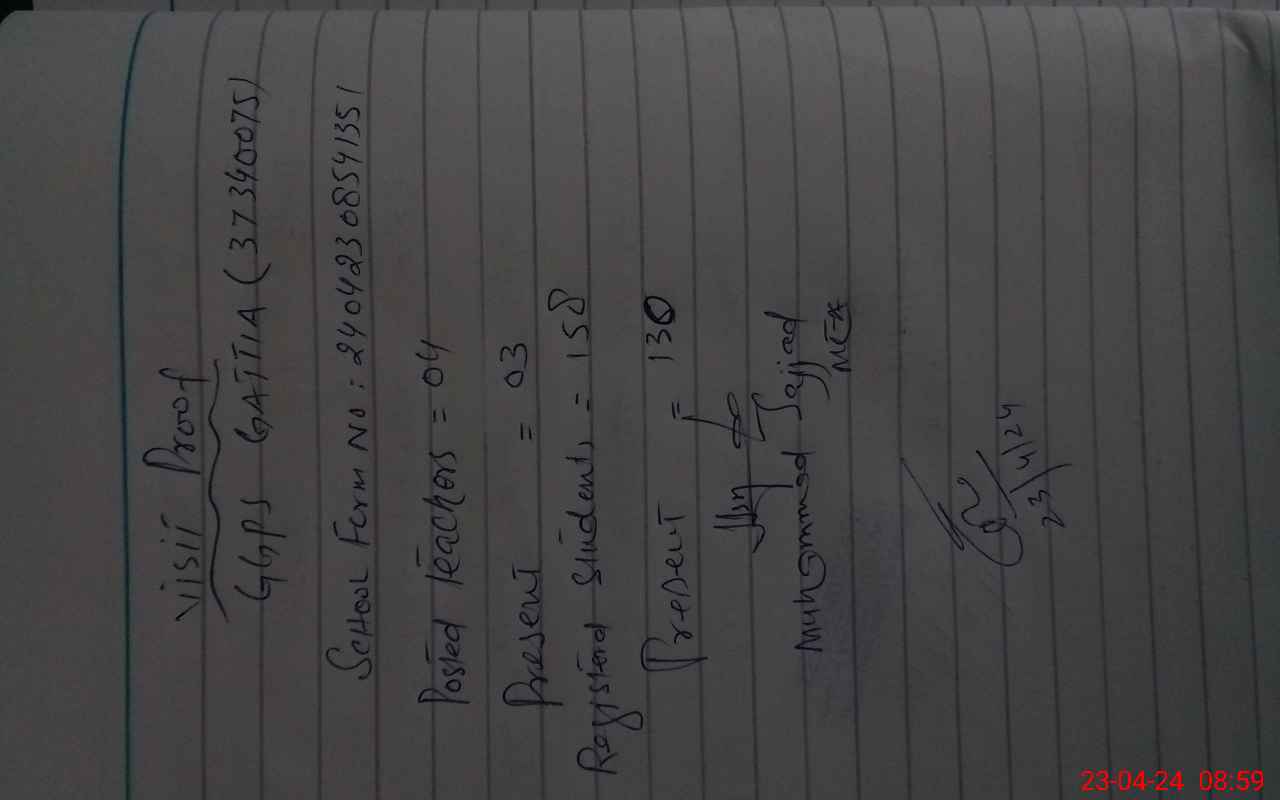 Visit Proof
GGPS GATTIA (37340075)
SCHOOL Form No: 24042308541351
Posted Teachers = 04
Present = 03
Registerd Students = 158
Present = 130
Muhammad Sajjad
MEA
23/4/24
23-04-24 08:59